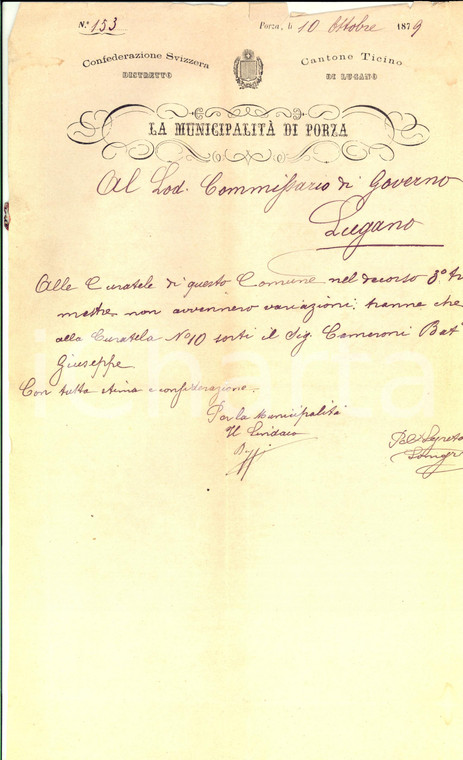 N.° 153
Porza, li 10 Ottobre 1879
Confederazione Svizzera
DISTRETTO
Cantone Ticino
DI LUGANO
LA MUNICIPALITÀ DI PORZA
Al Lod. Commissario di Governo
Lugano
Alle Curatele di questo Comune nel decorso 3.° tri
mestre non avvennero variazioni, tranne che
alla Curatela N.° 10 sortì il Sig Cameroni Bat
Giuseppe
Con tutta stima e considerazione.
Per la Municipalità
Il Sindaco
Pel Segreta
icharta